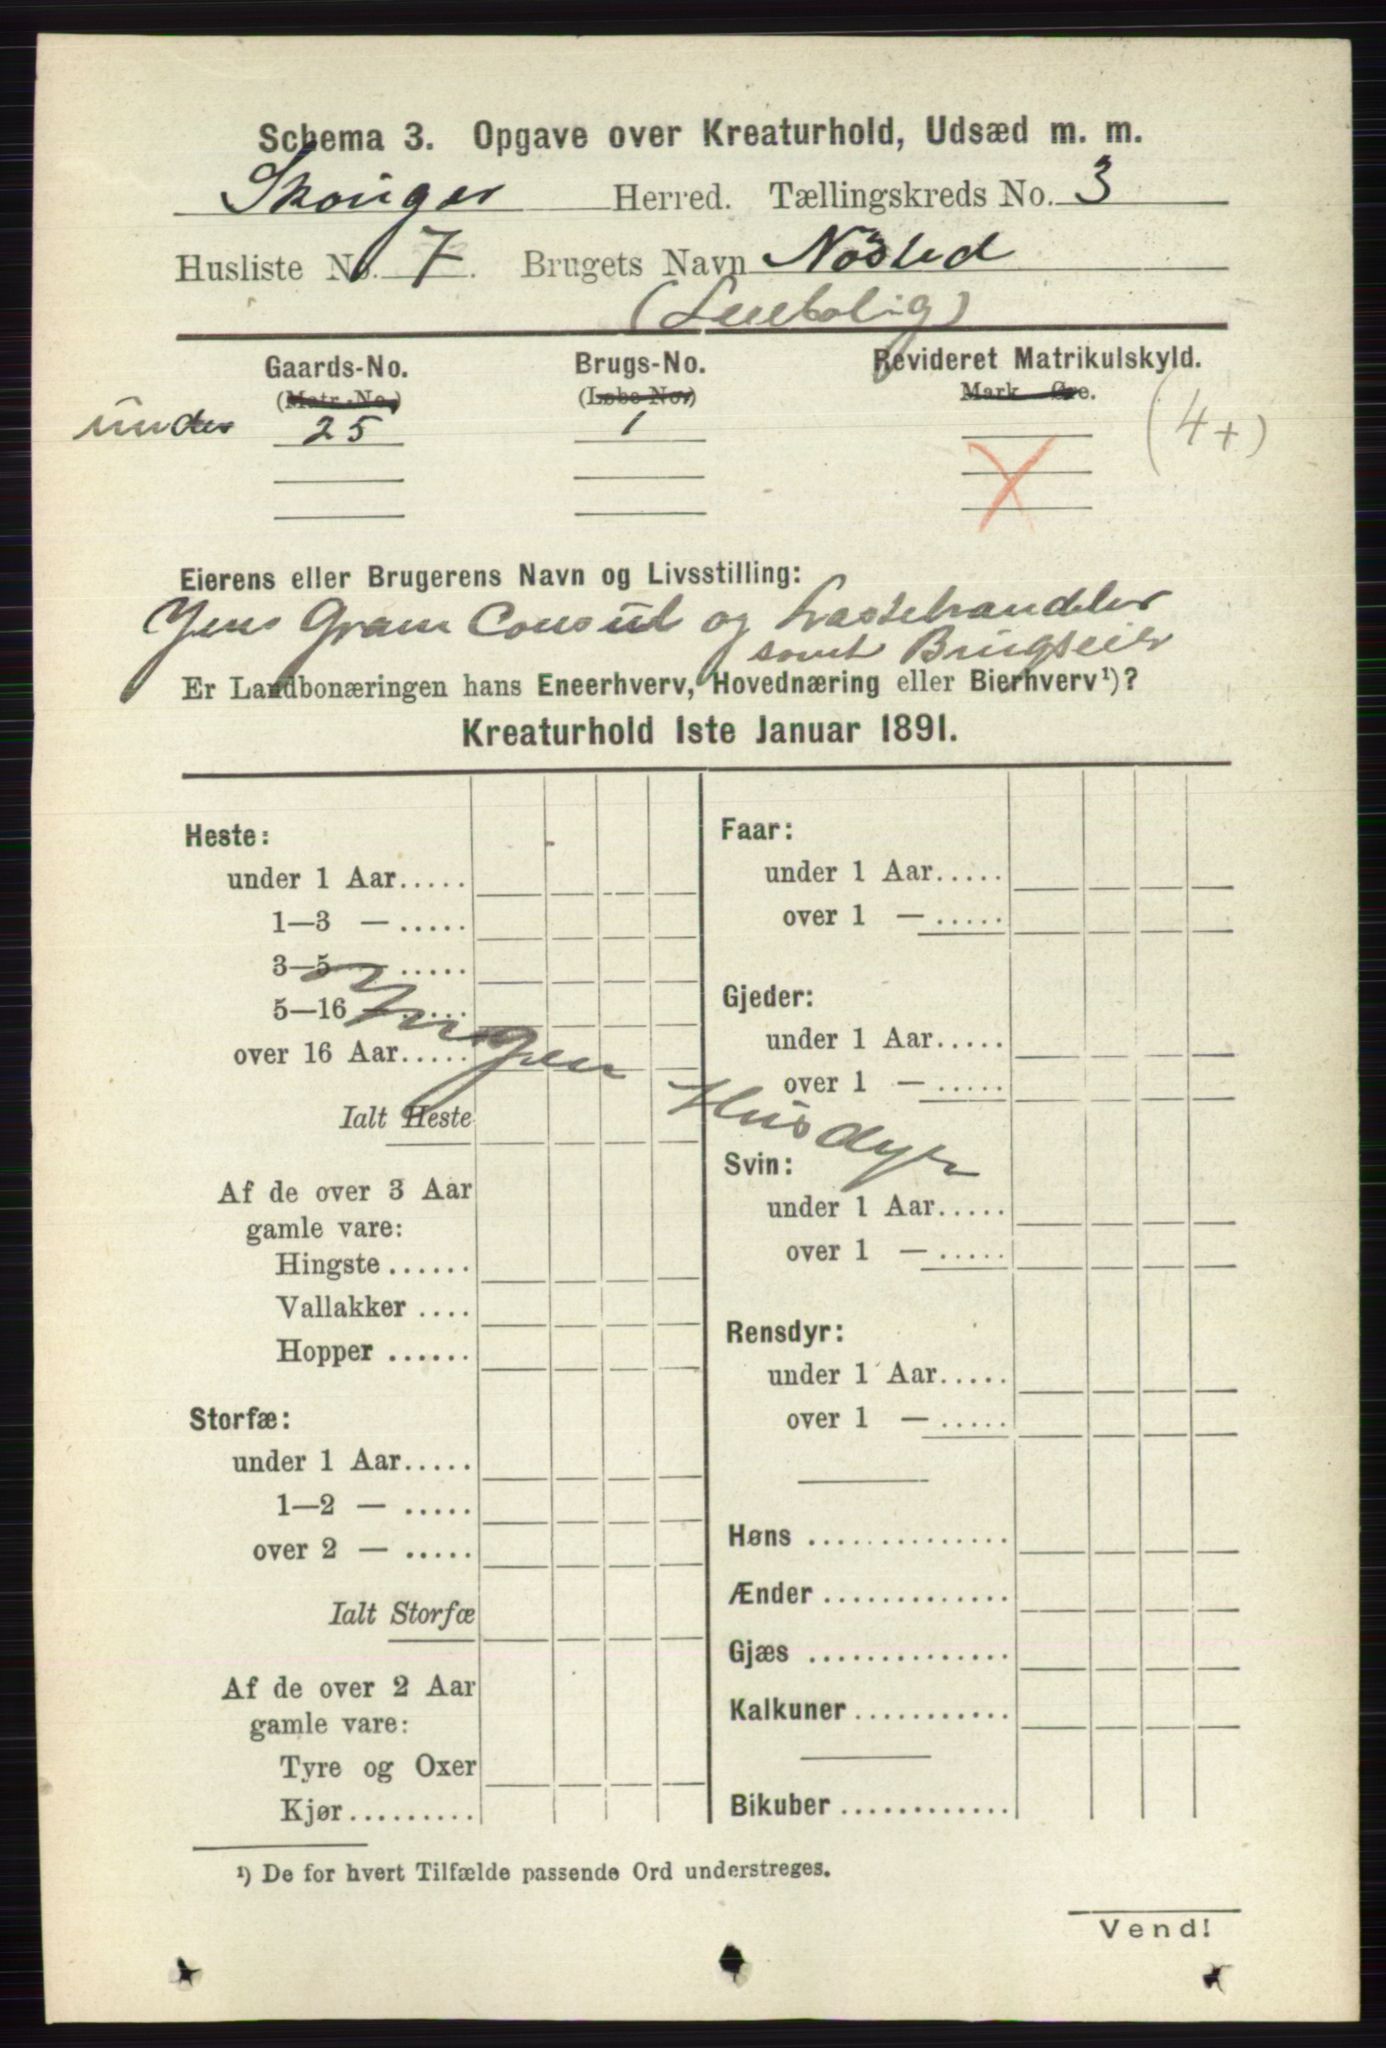 Schema 3. Opgave over Kreaturhold, Udsæd m. m.
Skouger Herred. Tællingskreds No. 3
Husliste No. 7. Brugets Navn Nøsted
(Leiebolig)
Gaards-No. Brugs-No. Revideret Matrikulskyld.
(Matr.-No.) (Løbe-No.) Mark Øre.
under 25 1 (4+)
Eierens eller Brugerens Navn og Livsstilling:
Jens Gram Consul og Trælasthandler
samt Brugseier
Er Landbonæringen hans Eneerhverv, Hovednæring eller Bierhverv¹)?
Kreaturhold 1ste Januar 1891.
Heste:
under 1 Aar.....
1—3 — .....
3—5 — .....
5—16 .....
over 16 Aar.....
Ialt Heste
Af de over 3 Aar
gamle vare:
Hingste ......
Vallakker ....
Hopper ......
Storfæ:
under 1 Aar.....
1—2 — .....
over 2 — .....
Ialt Storfæ
Af de over 2 Aar
gamle vare:
Tyre og Oxer
Kjør.........
Ingen Husdyr
Faar:
under 1 Aar.....
over 1 — .....
Gjeder:
under 1 Aar.....
over 1 — .....
Svin:
under 1 Aar.....
over 1 — .....
Rensdyr:
under 1 Aar.....
over 1 — .....
Høns ..............
Ænder .............
Gjæs ..............
Kalkuner ...........
Bikuber ............
¹) De for hvert Tilfælde passende Ord understreges.
Vend!